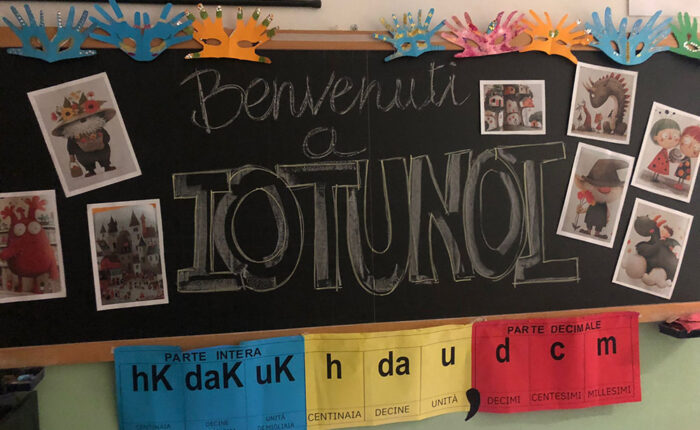 Benvenuti
a
IOTUNOI
PARTE INTERA
PARTE DECIMALE
hK daK uK h da u , d c m
CENTINAIA DECINE UNITÀ CENTINAIA DECINE UNITÀ DECIMI CENTESIMI MILLESIMI